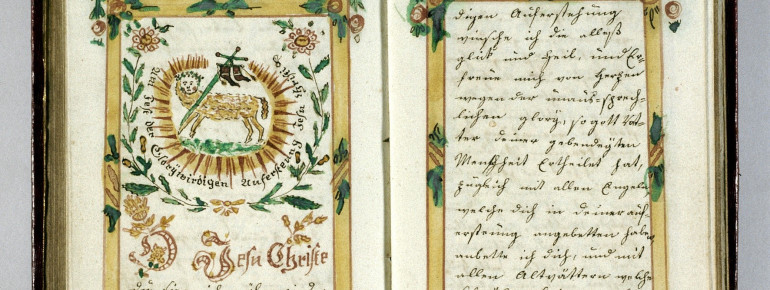 Am Fest der Glorÿwirdigen Aufersteung Jesu Christi
O Jesu Christe
digen Auferstehung
wünsche ich dir alles
glück und Heil, und Er-
freue mich von Herzen
wegen der unaus-sprech-
lichen glorÿ, so gott Vat-
ter deiner gebenedeÿten
Menschheit Ertheilet hat,
zugleich mit allen Engeln
welche dich in deiner auf-
ersteung angebetten haben
anbette ich dich, und mit
allen Altvättern welche